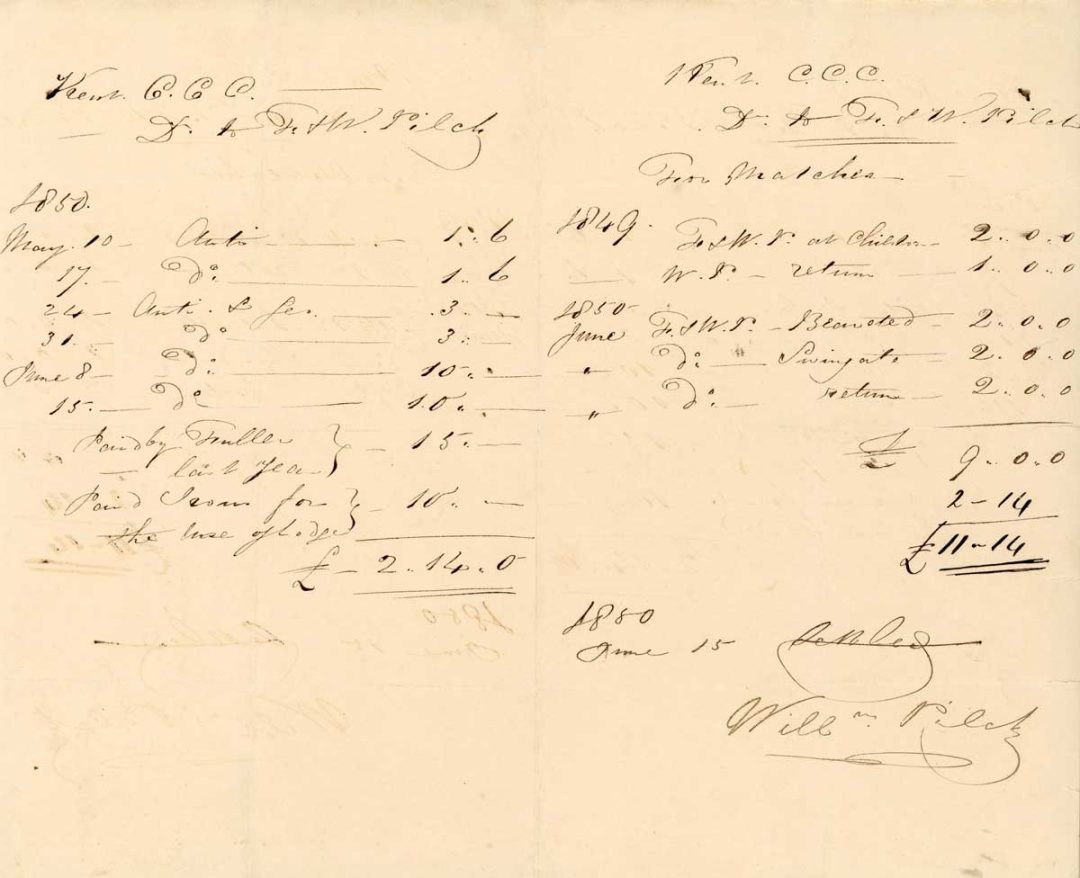 Kent. C.C.C.
Dr. to F. & W. Pilch
1850.
May. 10 — — 1.. 6
17. — Do. — 1.. 6
24 — & — 3.. —
31. — Do. — 3.. —
June 8 — Do. — 10.. —
15. — Do. — 10.. —
Paid by Fuller } — 15.. —
— last year
Paid for } — 10.. —
the use of Lodge
£ — 2 . 14 . 0
Kent. C.C.C.
Dr. to F. & W. Pilch
For Matches —
1849. F & W. P. at — 2.. 0.. 0
W. P. — return — 1.. 0.. 0
1850
June F. & W. P. — Bearsted — 2.. 0.. 0
" Do. " — Swingate — 2.. 0.. 0
" Do. — return — 2.. 0.. 0
£ 9.. 0.. 0
2 — 14
£ 11 — 14
1850
June 15 Settled
Willm Pilch